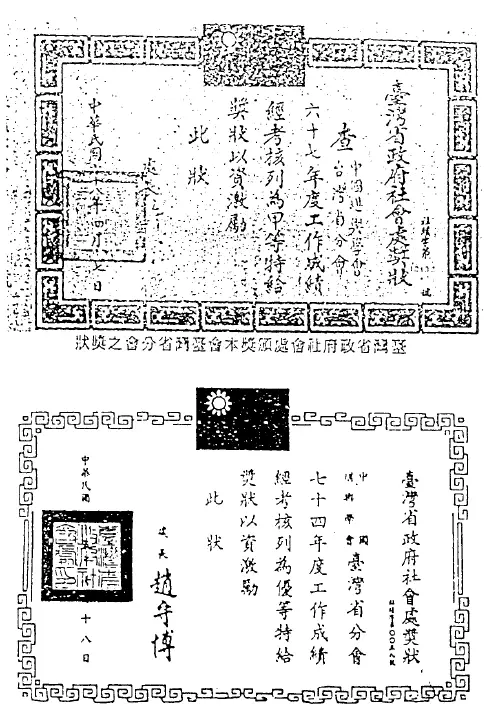 臺灣省政府社會處獎狀
查
中國 學會
台灣省分會
六十七年度工作成績
經考核列為甲等特給
獎狀以資激勵
此狀
中華民國 十八年四月 七日
臺灣省政府社會處頒獎本會臺灣省分會之獎狀
臺灣省政府社會處獎狀
字第〇〇五八號
中國 學會臺灣省分會
七十四年度工作成績
經考核列為優等特給
獎狀以資激勵
此狀
處長 趙守博
中華民國 十八日